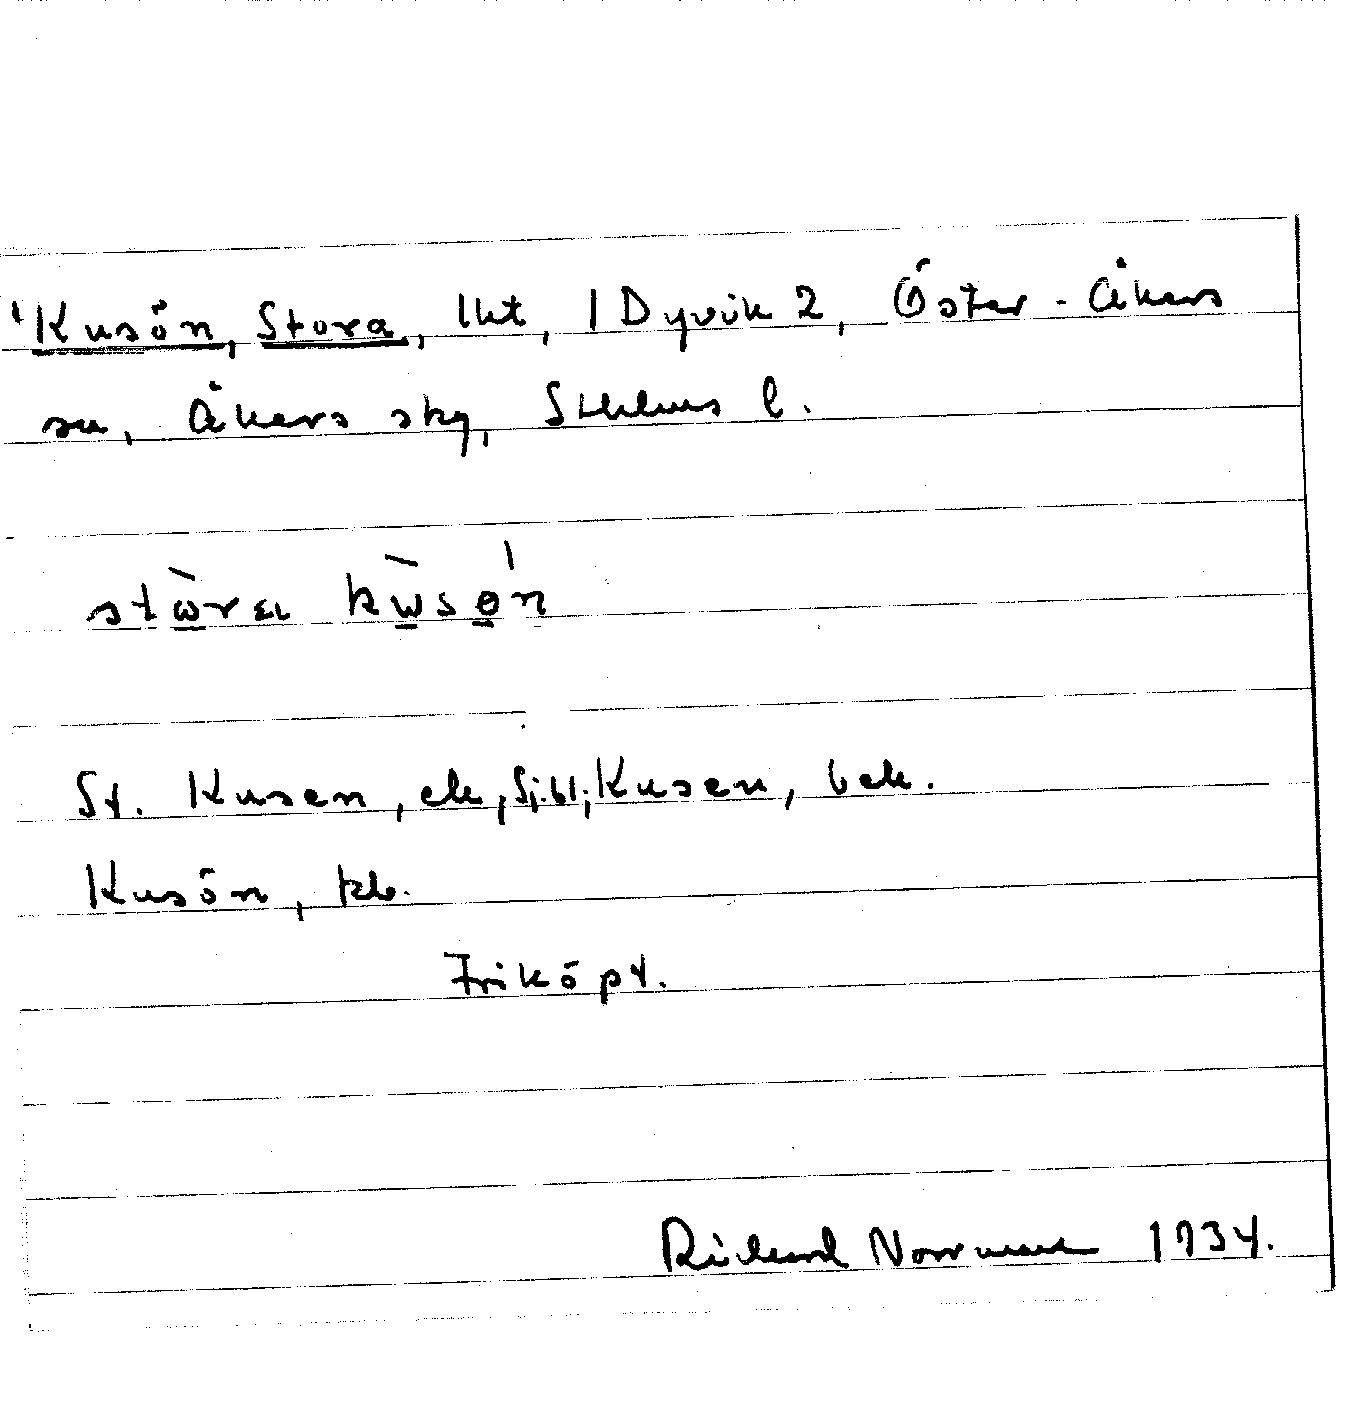 Kusön, Stora, lht, 1 Dyvik 2, Öster-Åkers
sn, Åkers skg, Sthlms l.
stὼra kὼsɵ́n
St. Kusen, ek, Sj.bl; Kusen, bek.
Kusön, tlb.
Friköpt.
Rickard Norrman 1934.